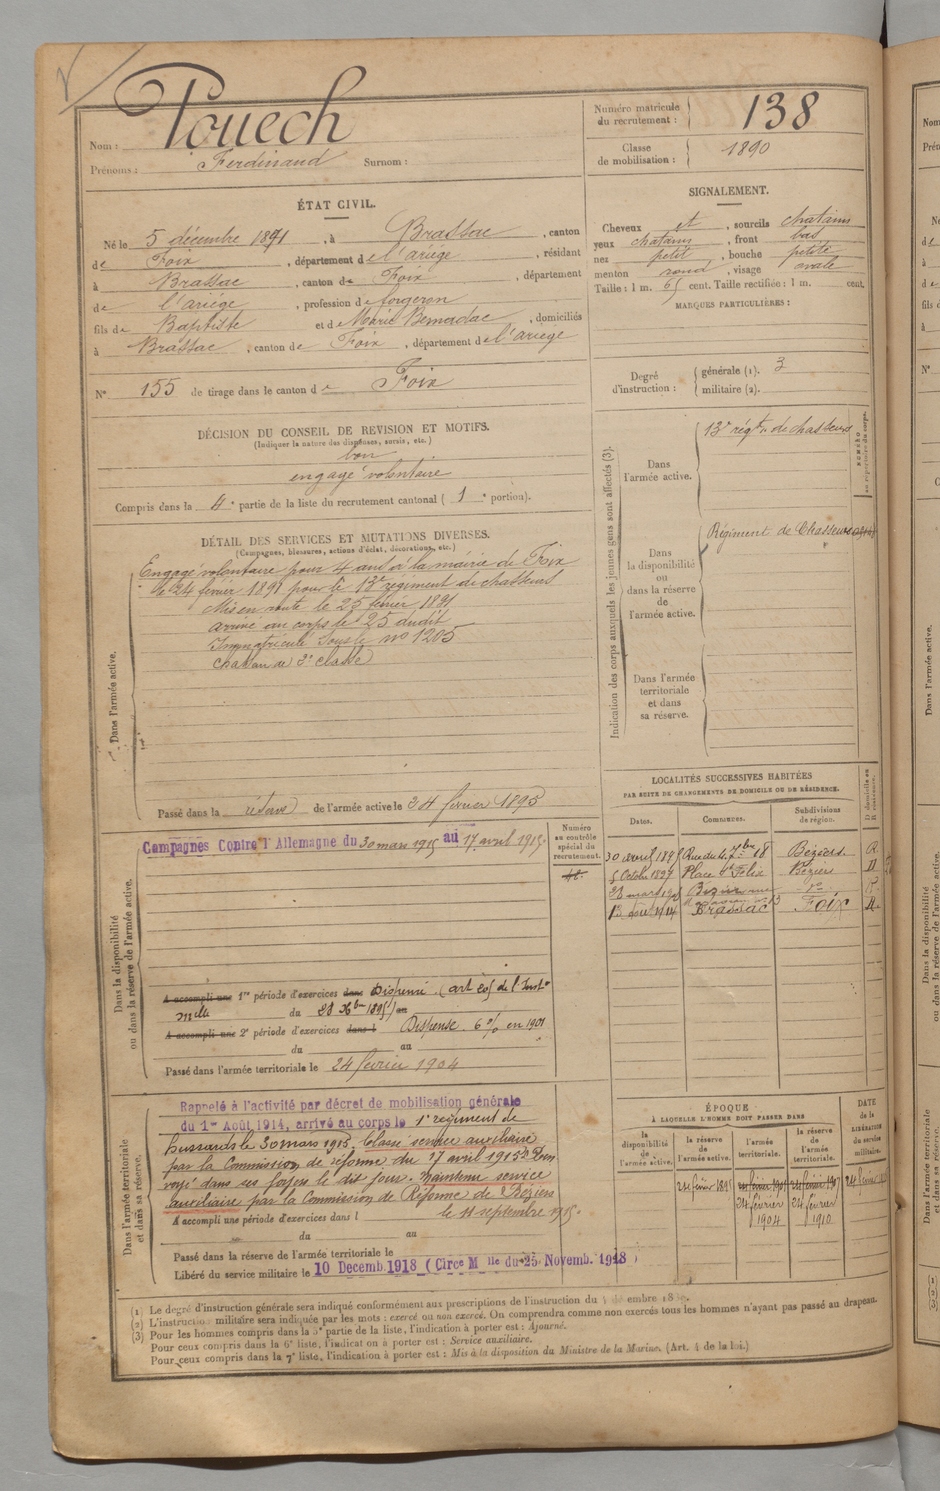 Pouech
Nom :
Prénoms : Ferdinand Surnom :
Numéro matricule du recrutement : 138
Classe de mobilisation : 1890
ÉTAT CIVIL.
Né le 5 décembre 1871, à Brassac, canton
de Foix, département de l'ariège, résidant
à Brassac, canton de Foix, département
de l'ariège, profession de forgeron
fils de Baptiste et de Marie Bernadac, domiciliés
à Brassac, canton de Foix, département de l'ariège
N° 155 de tirage dans le canton de Foix
SIGNALEMENT.
Cheveux et, sourcils chatains
yeux chatains, front bas
nez petit, bouche petite
menton rond, visage ovale
Taille : 1 m. 65 cent. Taille rectifiée : 1 m. cent.
MARQUES PARTICULIÈRES :
Degré d'instruction : générale (1). 3
militaire (2).
DÉCISION DU CONSEIL DE REVISION ET MOTIFS.
(Indiquer la nature des dispenses, sursis, etc.)
bon
engagé volontaire
Compris dans la 4e partie de la liste du recrutement cantonal ( 1e portion).
DÉTAIL DES SERVICES ET MUTATIONS DIVERSES.
(Campagnes, blessures, actions d'éclat, décorations, etc.)
Dans l'armée active.
Engagé volontaire pour 4 ans à la mairie de Foix
le 24 février 1891 pour le 13e régiment de chasseurs
Mis en route le 25 février 1891
arrivé au corps le 25 dudit
Immatriculé sous le no 1205
chasseur de 2e classe
Passé dans la réserve de l'armée active le 24 février 1895
Indication des corps auxquels les jeunes gens sont affectés (3).
Dans l'armée active.
13e régt de chasseurs
Dans la disponibilité ou dans la réserve de l'armée active.
Régiment de Chasseurs
Dans l'armée territoriale et dans sa réserve.
NUMÉRO au répertoire du corps.
LOCALITÉS SUCCESSIVES HABITÉES
PAR SUITE DE CHANGEMENTS DE DOMICILE OU DE RÉSIDENCE.
Dates. Communes. Subdivisions de région. D domicile ou R résidence.
30 avril 1895 Rue du 4 7bre 18 Béziers. R
5 Octobre 1897 Place St Félix Béziers
Béziers
Brassac Foix R
Dans la disponibilité ou dans la réserve de l'armée active.
Campagnes Contre l'Allemagne du 30 mars 1915 au 17 avril 1915.
Numéro au contrôle spécial du recrutement.
A accompli une 1re période d'exercices dans Dispensé (art 20) de l'Inston
melle du 28 Xbre 1895) au
A accompli une 2e période d'exercices dans l Dispense 6 % en 1901
du au
Passé dans l'armée territoriale le 24 février 1904
Dans l'armée territoriale et dans sa réserve.
Rappelé à l'activité par décret de mobilisation générale
du 1er Août 1914, arrivé au corps le 1e régiment de
hussards le 30 mars 1915. Classé service auxiliaire
par la Commission de réforme du 17 avril 1915. Ren
voyé dans ses foyers le dit jour. Maintenu service
auxiliaire par la Commission de Réforme de Béziers
le 11 septembre 1915.
A accompli une période d'exercices dans l
du au
Passé dans la réserve de l'armée territoriale le
Libéré du service militaire le 10 Decemb. 1918 (Circe Mlle du 25 Novemb. 1918)
ÉPOQUE
À LAQUELLE L'HOMME DOIT PASSER DANS
la disponibilité de l'armée active. la réserve de l'armée active. l'armée territoriale. la réserve de l'armée territoriale. DATE de la LIBÉRATION du service militaire.
24 février 1895 24 février 1904 24 février 1910
(1) Le degré d'instruction générale sera indiqué conformément aux prescriptions de l'instruction du
(2) L'instruction militaire sera indiquée par les mots : exercé ou non exercé. On comprendra comme non exercés tous les hommes n'ayant pas passé au drapeau.
(3) Pour les hommes compris dans la 5e partie de la liste, l'indication à porter est : Ajourné.
Pour ceux compris dans la 6e liste, l'indication à porter est : Service auxiliaire.
Pour ceux compris dans la 7e liste, l'indication à porter est : Mis à la disposition du Ministre de la Marine. (Art. 4 de la loi.)